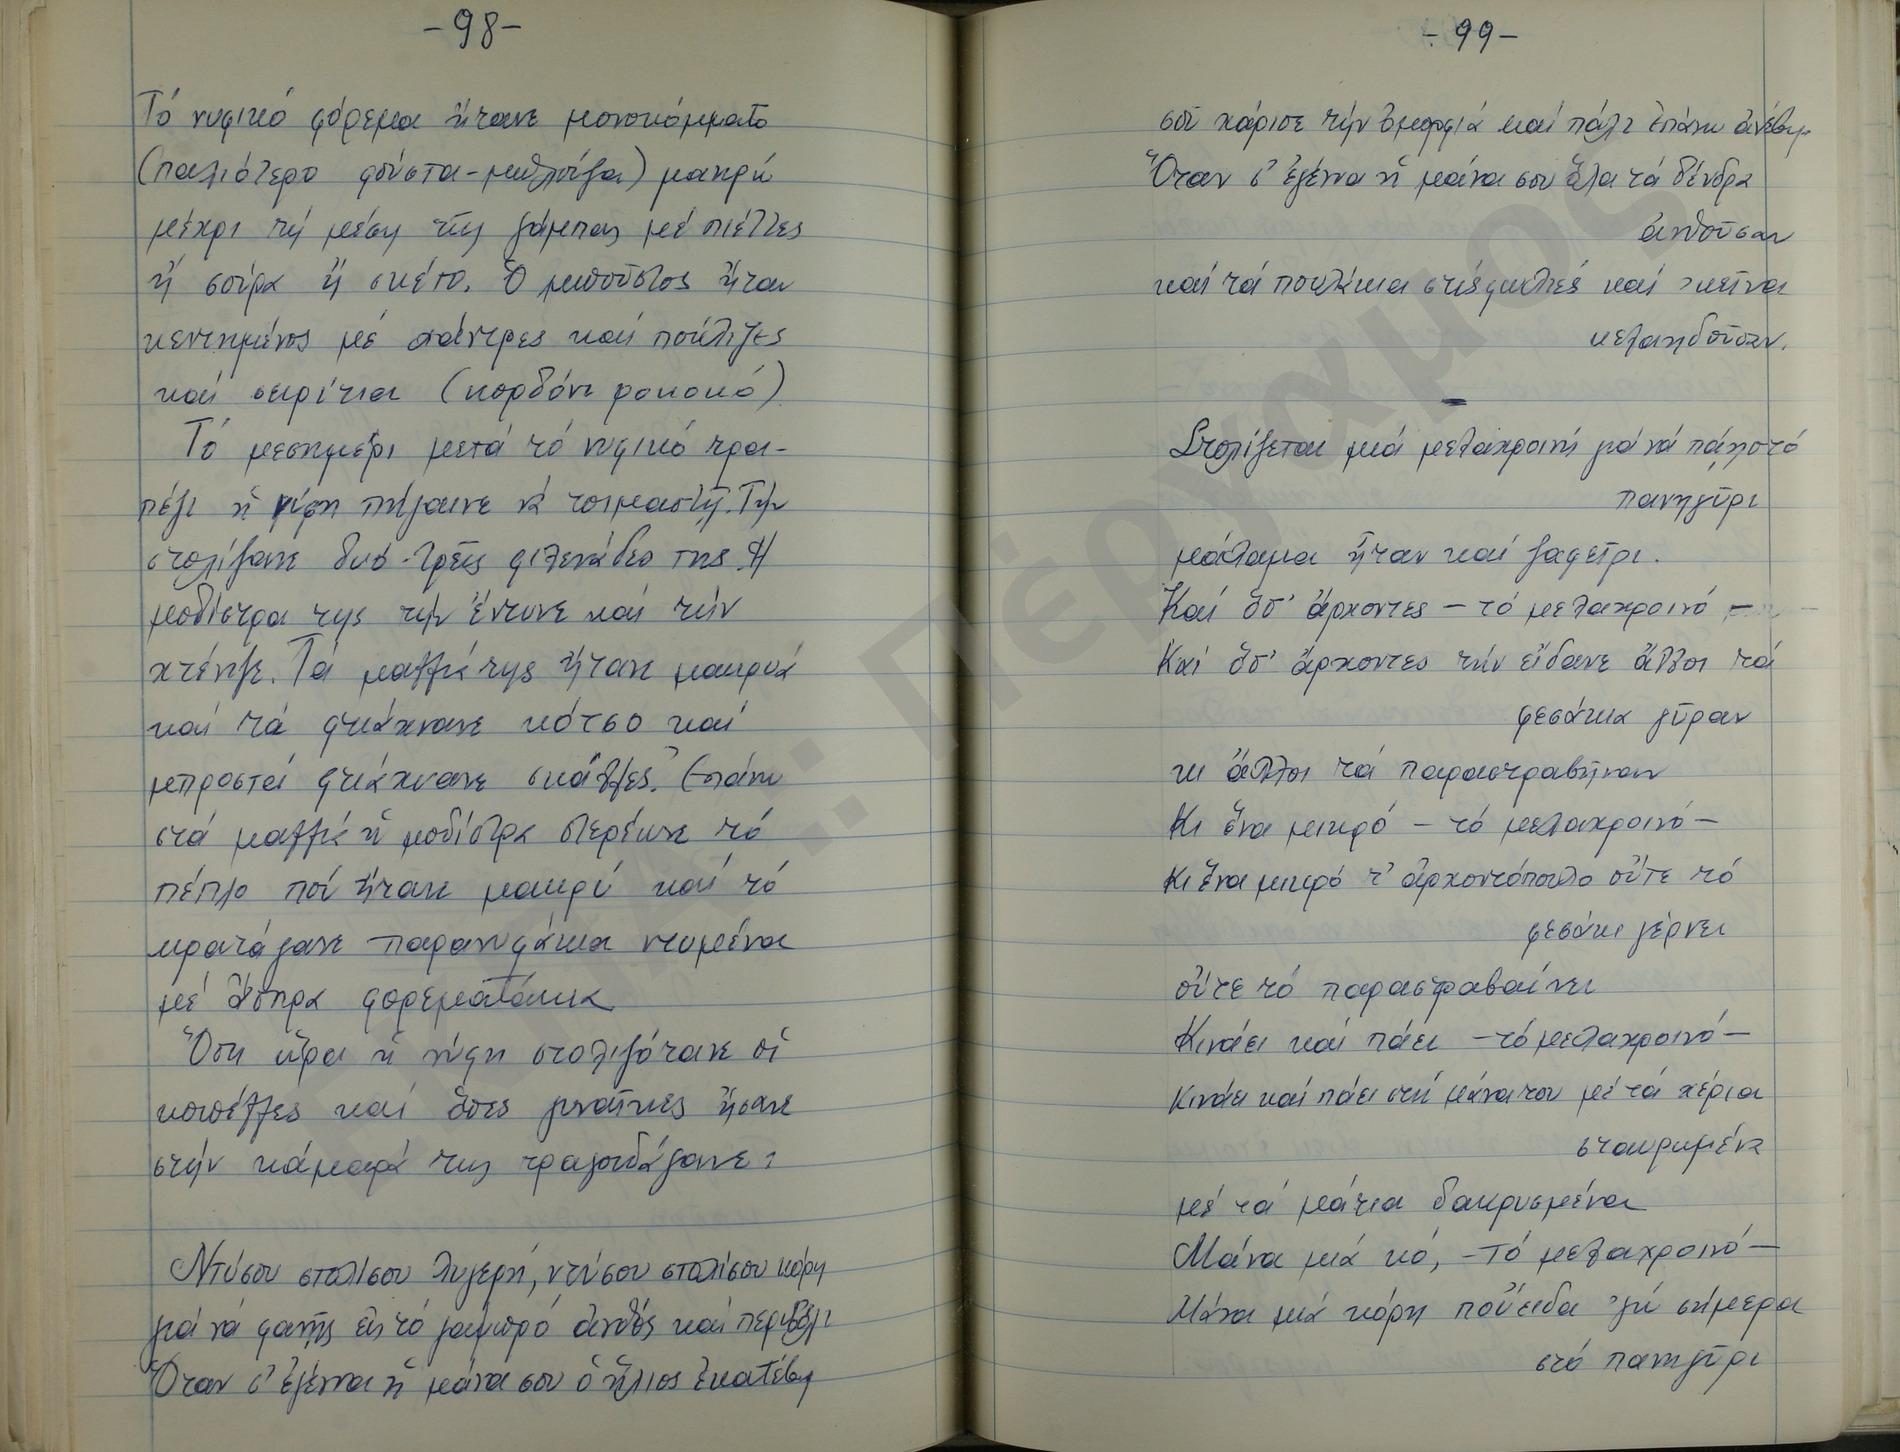 -98-
Τό νυφικό φόρεμα ἤτανε μονοκόμματο
(παλιότερο φούστα-μπλούζα) μακρύ
μέχρι τή μέση τῆς γάμπας μέ πιέττες
ἤ σούρα ἤ σκέτο. Ὁ μποῦστος ἤταν
κεντημένος μέ χάντρες καί πούλιζες
καί σειρίτια (κορδόνι ροκοκό)
Τό μεσημέρι μετά τό νυφικό τρα-
πέζι ἡ νύφη πήγαινε νά τοιμαστῆ. Τήν
στολίζανε δυό-τρεῖς φιλενάδες της. Ἡ
μοδίστρα της τήν ἔντυνε καί τήν
χτένιζε. Τά μαλλιά της ἤτανε μακρυά
καί τά φκιάχνανε κότσο καί
μπροστά φκιάχνανε σκάλλες. Ἐπάνω
στά μαλλιά ἡ μοδίστρα στερέωνε τό
πέπλο πού ἤτανε μακρύ καί τό
κρατάγανε παρανυφάκια ντυμένα
μέ ἄσπρα φορεματάκια
Ὅση ὥρα ἡ νύφη στολιζότανε οἱ
κοπέλλες καί ὅσες γυναῖκες ἤσανε
στήν κάμαρά της τραγουδάγανε:
Ντύσου στολίσου λυγερή, ντύσου στολίσου κόρη
γιά νά φανῆς εἰς τό γαμπρό ἀνθός καί περιβόλι
Ὅταν σ' ἐγέννα ἡ μάνα σου ὁ ἥλιος ἐκατέβη
-99-
σοῦ χάρισε τήν ὀμορφιά καί πάλι ἐπάνω ἀνέβη
Ὅταν σ' ἐγέννα ἡ μάνα σου ὅλα τά δένδρα
ἀνθοῦσαν
καί τά πουλάκια στίς φωλιές καί 'κεῖνα
κελαηδοῦσαν.
Στολίζεται μιά μελαχροινή γιά νά πάῃ στό
πανηγῦρι
μάλαμα ἦταν καί ζαφεῖρι.
Καί ὅσ' ἄρχοντες - τό μελαχροινό -
Καί ὅσ' ἄρχοντες τήν εἴδανε ἄλλοι τά
φεσάκια γῦραν
κι ἄλλοι τά παραστραβῆκαν
Κι ἕνα μικρό - τό μελαχροινό-
Κι ἕνα μικρό τ' ἀρχοντόπουλο οὔτε τό
φεσάκι γέρνει
οὔτε τό παραστραβαίνει
Κινάει καί πάει -τό μελαχροινό-
Κινάει καί πάει στή μάνα του μέ τά χέρια
σταυρωμένα
μέ τά μάτια δακρυσμένα
Μάνα μιά κό, -τό μελαχροινό-
Μάνα μιά κόρη ποὖειδα 'γώ σήμερα
στό πανηγῦρι